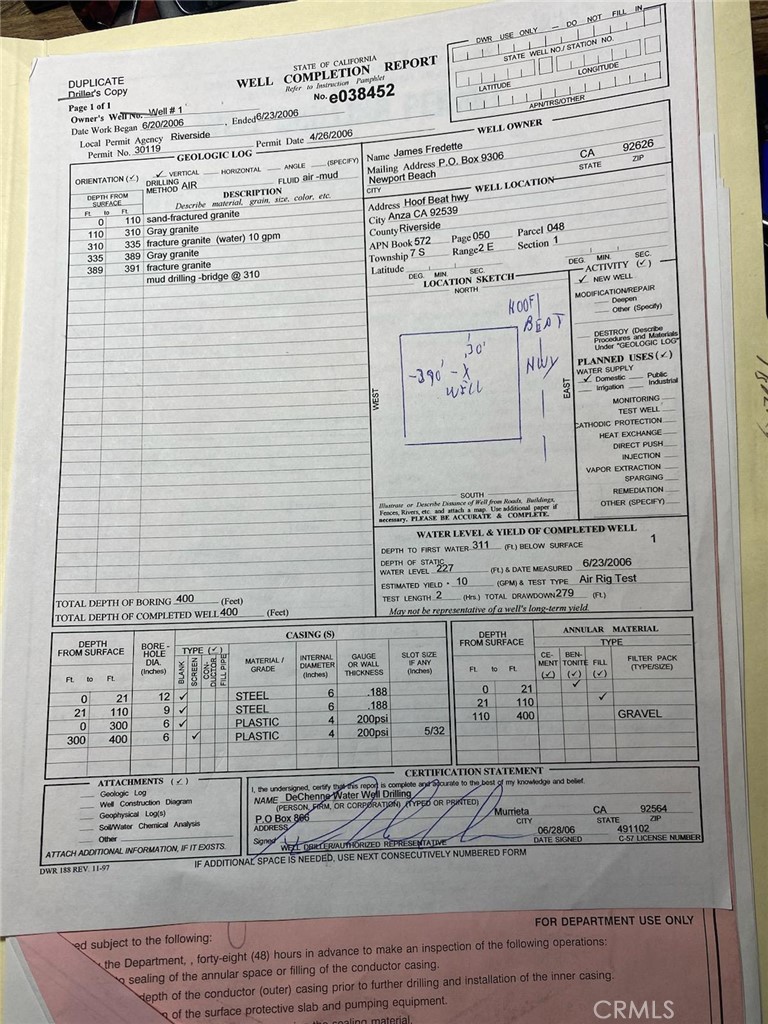 DUPLICATE
Driller's Copy
Page 1 of 1
Owner's Well No. Well # 1
Date Work Began 6/20/2006 , Ended 6/23/2006
Local Permit Agency Riverside
Permit No. 30119 Permit Date 4/26/2006
STATE OF CALIFORNIA
WELL COMPLETION REPORT
Refer to Instruction Pamphlet
No. e038452
DWR USE ONLY — DO NOT FILL IN
STATE WELL NO./STATION NO.
LATITUDE LONGITUDE
APN/TRS/OTHER
GEOLOGIC LOG
ORIENTATION (✓) ✓ VERTICAL HORIZONTAL ANGLE (SPECIFY)
DRILLING METHOD AIR FLUID air -mud
DEPTH FROM SURFACE
Ft. to Ft.
DESCRIPTION
Describe material, grain, size, color, etc.
0 110 sand-fractured granite
110 310 Gray granite
310 335 fracture granite (water) 10 gpm
335 389 Gray granite
389 391 fracture granite
mud drilling -bridge @ 310
TOTAL DEPTH OF BORING 400 (Feet)
TOTAL DEPTH OF COMPLETED WELL 400 (Feet)
WELL OWNER
Name James Fredette
Mailing Address P.O. Box 9306
Newport Beach CA 92626
CITY STATE ZIP
WELL LOCATION
Address Hoof Beat hwy
City Anza CA 92539
County Riverside
APN Book 572 Page 050 Parcel 048
Township 7 S Range 2 E Section 1
Latitude
DEG. MIN. SEC. DEG. MIN. SEC.
LOCATION SKETCH
NORTH
HOOF
BEAT
HWY
30'
-390' - X
WELL
WEST
EAST
SOUTH
Illustrate or Describe Distance of Well from Roads, Buildings,
Fences, Rivers, etc. and attach a map. Use additional paper if
necessary. PLEASE BE ACCURATE & COMPLETE.
ACTIVITY (✓)
✓ NEW WELL
MODIFICATION/REPAIR
Deepen
Other (Specify)
DESTROY (Describe
Procedures and Materials
Under "GEOLOGIC LOG"
PLANNED USES (✓)
WATER SUPPLY
✓ Domestic Public
Irrigation Industrial
MONITORING
TEST WELL
CATHODIC PROTECTION
HEAT EXCHANGE
DIRECT PUSH
INJECTION
VAPOR EXTRACTION
SPARGING
REMEDIATION
OTHER (SPECIFY)
WATER LEVEL & YIELD OF COMPLETED WELL
1
DEPTH TO FIRST WATER 311 (Ft.) BELOW SURFACE
DEPTH OF STATIC
WATER LEVEL 227 (Ft.) & DATE MEASURED 6/23/2006
ESTIMATED YIELD • 10 (GPM) & TEST TYPE Air Rig Test
TEST LENGTH 2 (Hrs.) TOTAL DRAWDOWN 279 (Ft.)
May not be representative of a well's long-term yield.
DEPTH FROM SURFACE
Ft. to Ft.
BORE-HOLE DIA. (Inches)
CASING (S)
TYPE (✓)
BLANK SCREEN CON-DUCTOR FILL PIPE
MATERIAL / GRADE
INTERNAL DIAMETER (Inches)
GAUGE OR WALL THICKNESS
SLOT SIZE IF ANY (Inches)
0 21 12 ✓ STEEL 6 .188
21 110 9 ✓ STEEL 6 .188
0 300 6 ✓ PLASTIC 4 200psi
300 400 6 ✓ PLASTIC 4 200psi 5/32
DEPTH FROM SURFACE
Ft. to Ft.
ANNULAR MATERIAL
TYPE
CE-MENT (✓) BEN-TONITE (✓) FILL (✓) FILTER PACK (TYPE/SIZE)
0 21 ✓
21 110 ✓
110 400 GRAVEL
ATTACHMENTS (✓)
Geologic Log
Well Construction Diagram
Geophysical Log(s)
Soil/Water Chemical Analysis
Other
ATTACH ADDITIONAL INFORMATION, IF IT EXISTS.
CERTIFICATION STATEMENT
I, the undersigned, certify that this report is complete and accurate to the best of my knowledge and belief.
NAME DeChenne Water Well Drilling
(PERSON, FIRM, OR CORPORATION) (TYPED OR PRINTED)
P.O Box 866 Murrieta CA 92564
ADDRESS CITY STATE ZIP
Signed 06/28/06 491102
WELL DRILLER/AUTHORIZED REPRESENTATIVE DATE SIGNED C-57 LICENSE NUMBER
DWR 188 REV. 11-97
IF ADDITIONAL SPACE IS NEEDED, USE NEXT CONSECUTIVELY NUMBERED FORM
FOR DEPARTMENT USE ONLY
ed subject to the following:
the Department, , forty-eight (48) hours in advance to make an inspection of the following operations:
sealing of the annular space or filling of the conductor casing.
depth of the conductor (outer) casing prior to further drilling and installation of the inner casing.
of the surface protective slab and pumping equipment.
the sealing material.
CRMLS